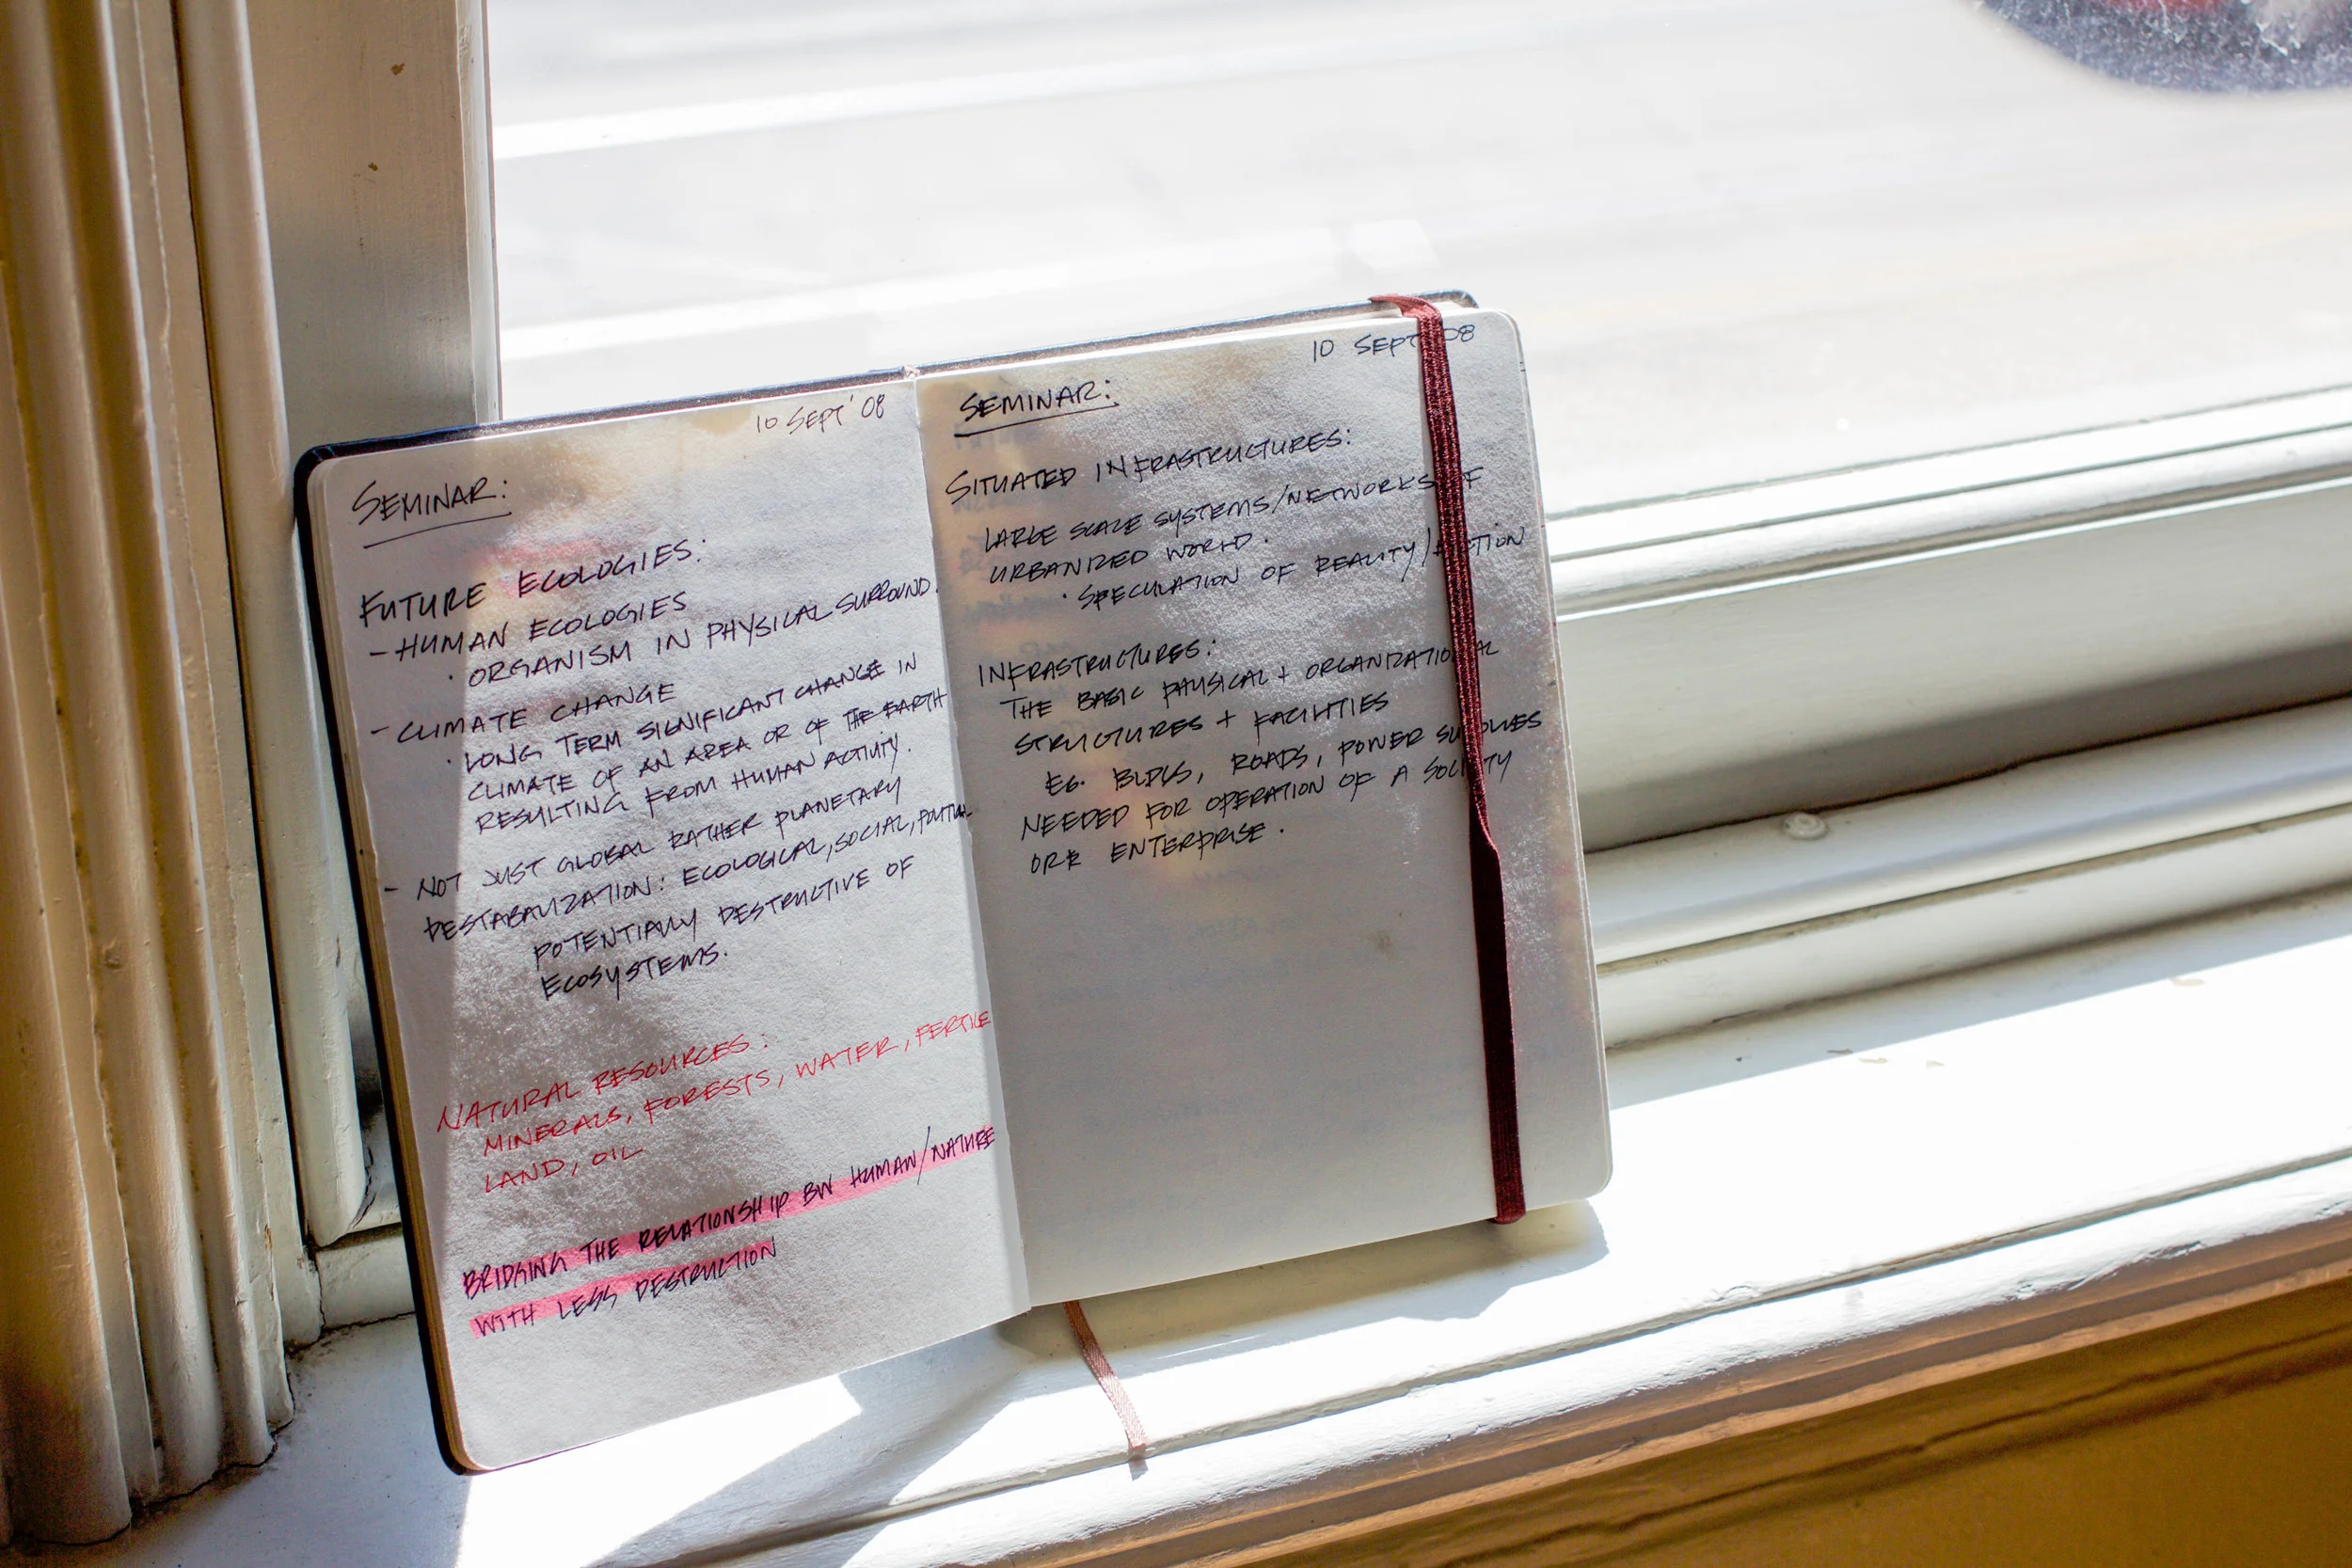 10 SEPT '08
SEMINAR:
FUTURE ECOLOGIES:
- HUMAN ECOLOGIES
· ORGANISM IN PHYSICAL SURROUND.
- CLIMATE CHANGE
· LONG TERM SIGNIFICANT CHANGE IN
CLIMATE OF AN AREA OR OF THE EARTH
RESULTING FROM HUMAN ACTIVITY.
- NOT JUST GLOBAL RATHER PLANETARY
DESTABALIZATION: ECOLOGICAL, SOCIAL, POLITICAL
POTENTIALLY DESTRUCTIVE OF
ECOSYSTEMS.
NATURAL RESOURCES:
MINERALS, FORESTS, WATER, FERTILE
LAND, OIL
BRIDGING THE RELATIONSHIP BW HUMAN/NATURE
WITH LESS DESTRUCTION
10 SEPT 08
SEMINAR:
SITUATED INFRASTRUCTURES:
LARGE SCALE SYSTEMS/NETWORKS OF
URBANIZED WORLD.
· SPECULATION OF REALITY/FICTION
INFRASTRUCTURES:
THE BASIC PHYSICAL + ORGANIZATIONAL
STRUCTURES + FACILITIES
EG. BLDGS, ROADS, POWER SUPPLIES
NEEDED FOR OPERATION OF A SOCIETY
OR ENTERPRISE.